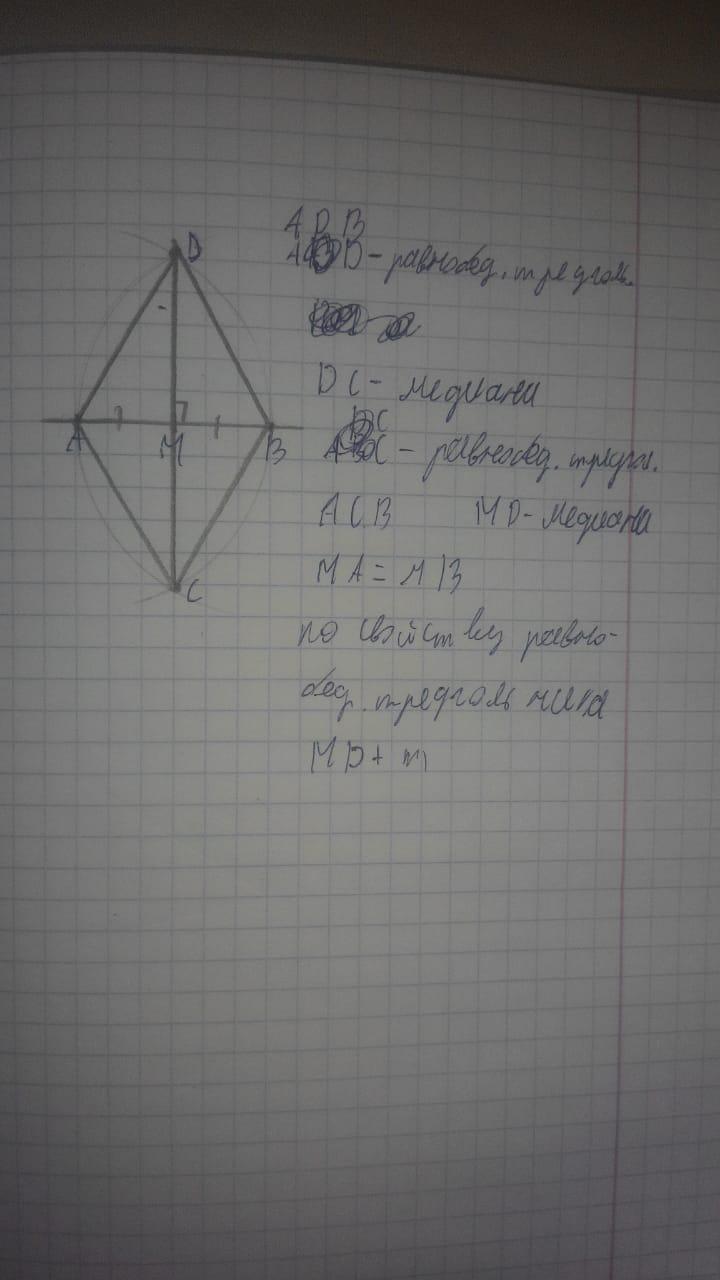 D
A
M
B
C
A D B
D - равнобед. треугол.
DC - медиана
BC
- равнобед. треугол.
ACB MD - медиана
MA = MB
по свойству равно-
бед. треугольника
MD + m